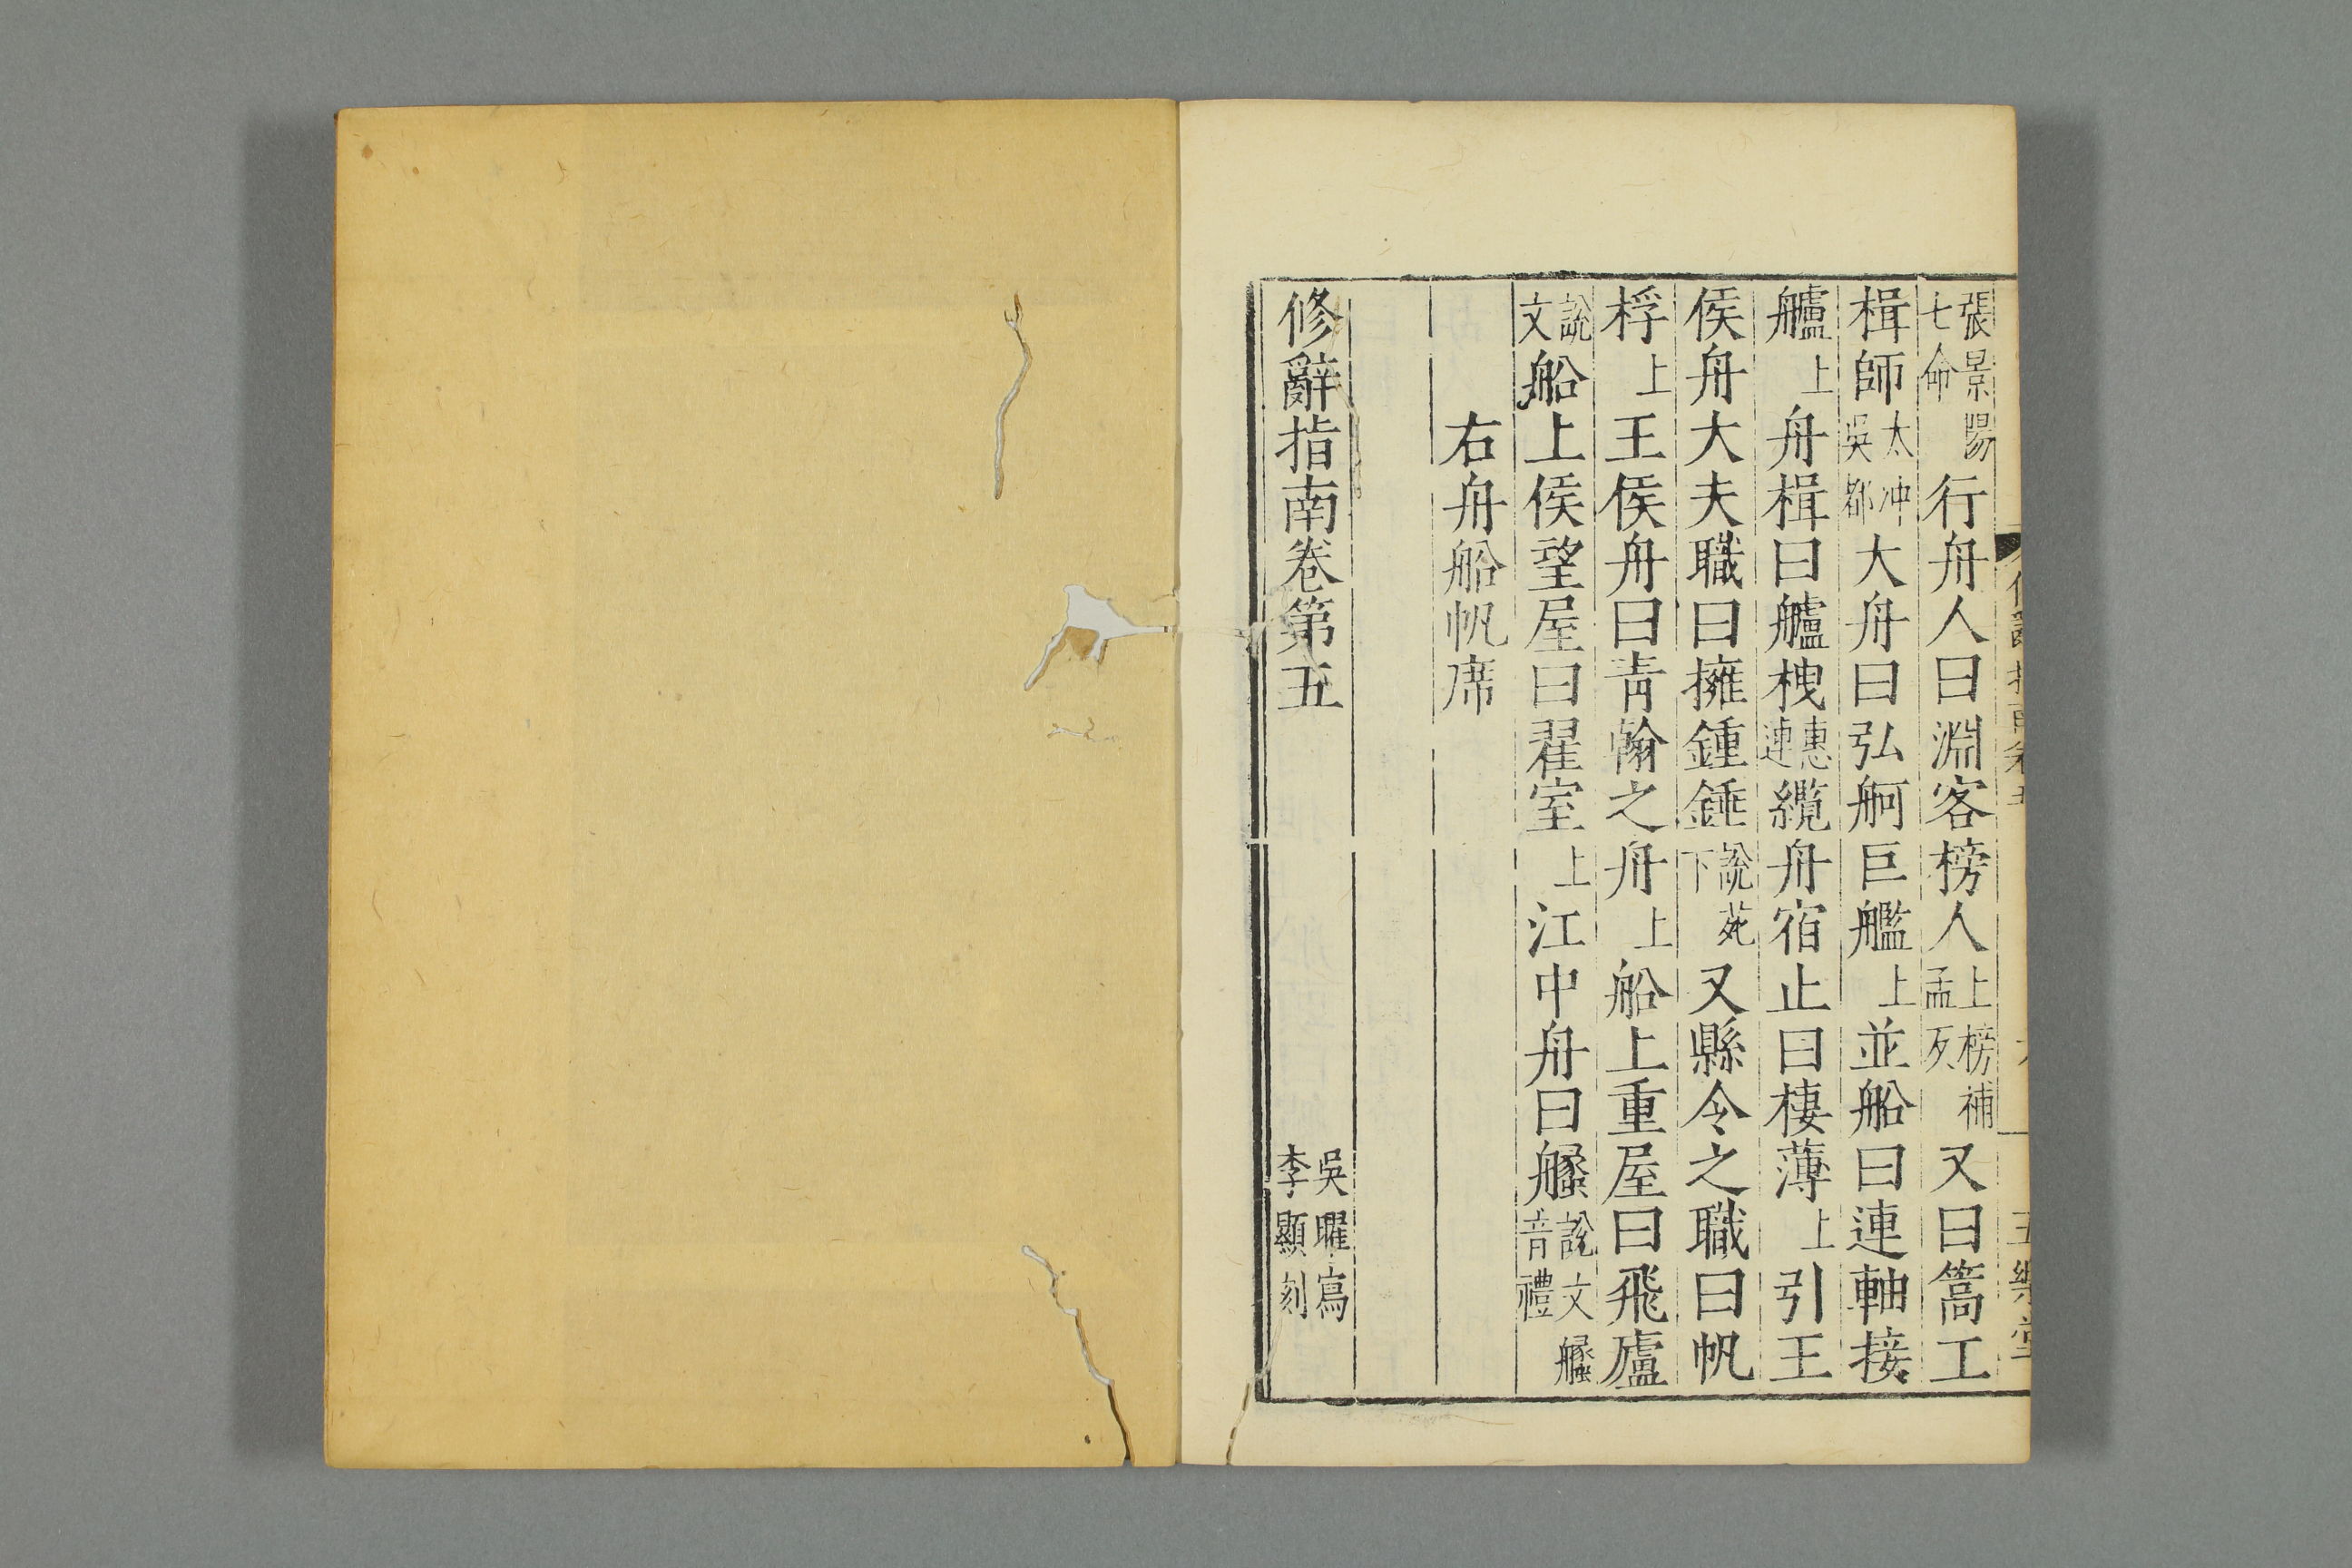 張景陽七命行舟人曰淵客榜人上榜補孟反又曰篙工
楫師太冲吳都大舟曰弘舸巨艦上並船曰連軸接
艫上舟楫曰艫栧惠連纜舟宿止曰棲薄上引王
侯舟大夫職曰擁鍾錘說苑下又縣令之職曰帆
桴上王侯舟曰青翰之舟上船上重屋曰飛廬
說文船上侯望屋曰翟室上江中舟曰說文音禮
右舟船帆席
修辭指南卷第五
吳曜寫
李顯刻